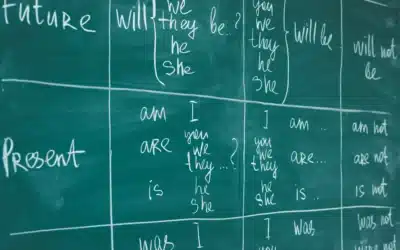 Future will { we they be..? he she you we they he she } will be will not be
Present
am I I am .. am not
are you we they ...? you we they are... are not
is he she he she is .. is not
was I I was was not
you were not